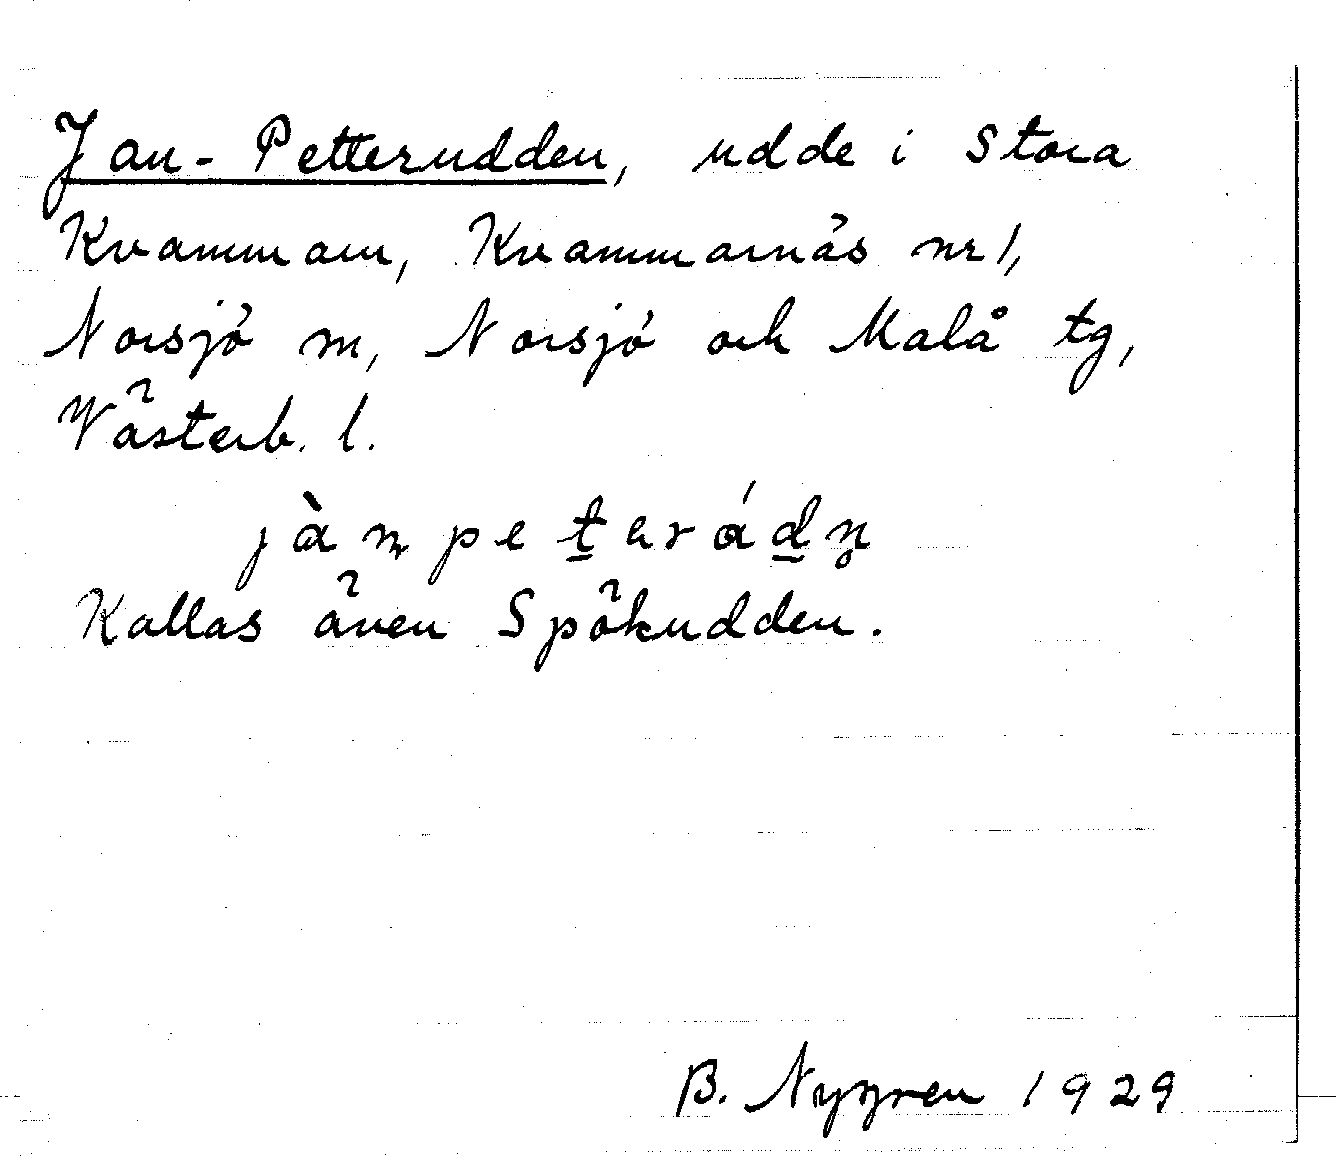 Jan-Petterudden, udde i Stora
Kvammarn, Kvammarnäs nr 1,
Norsjö sn, Norsjö och Malå tg,
Västerb. l.
jànpetarádn̥
Kallas även Spökudden.
B. Nygren 1929